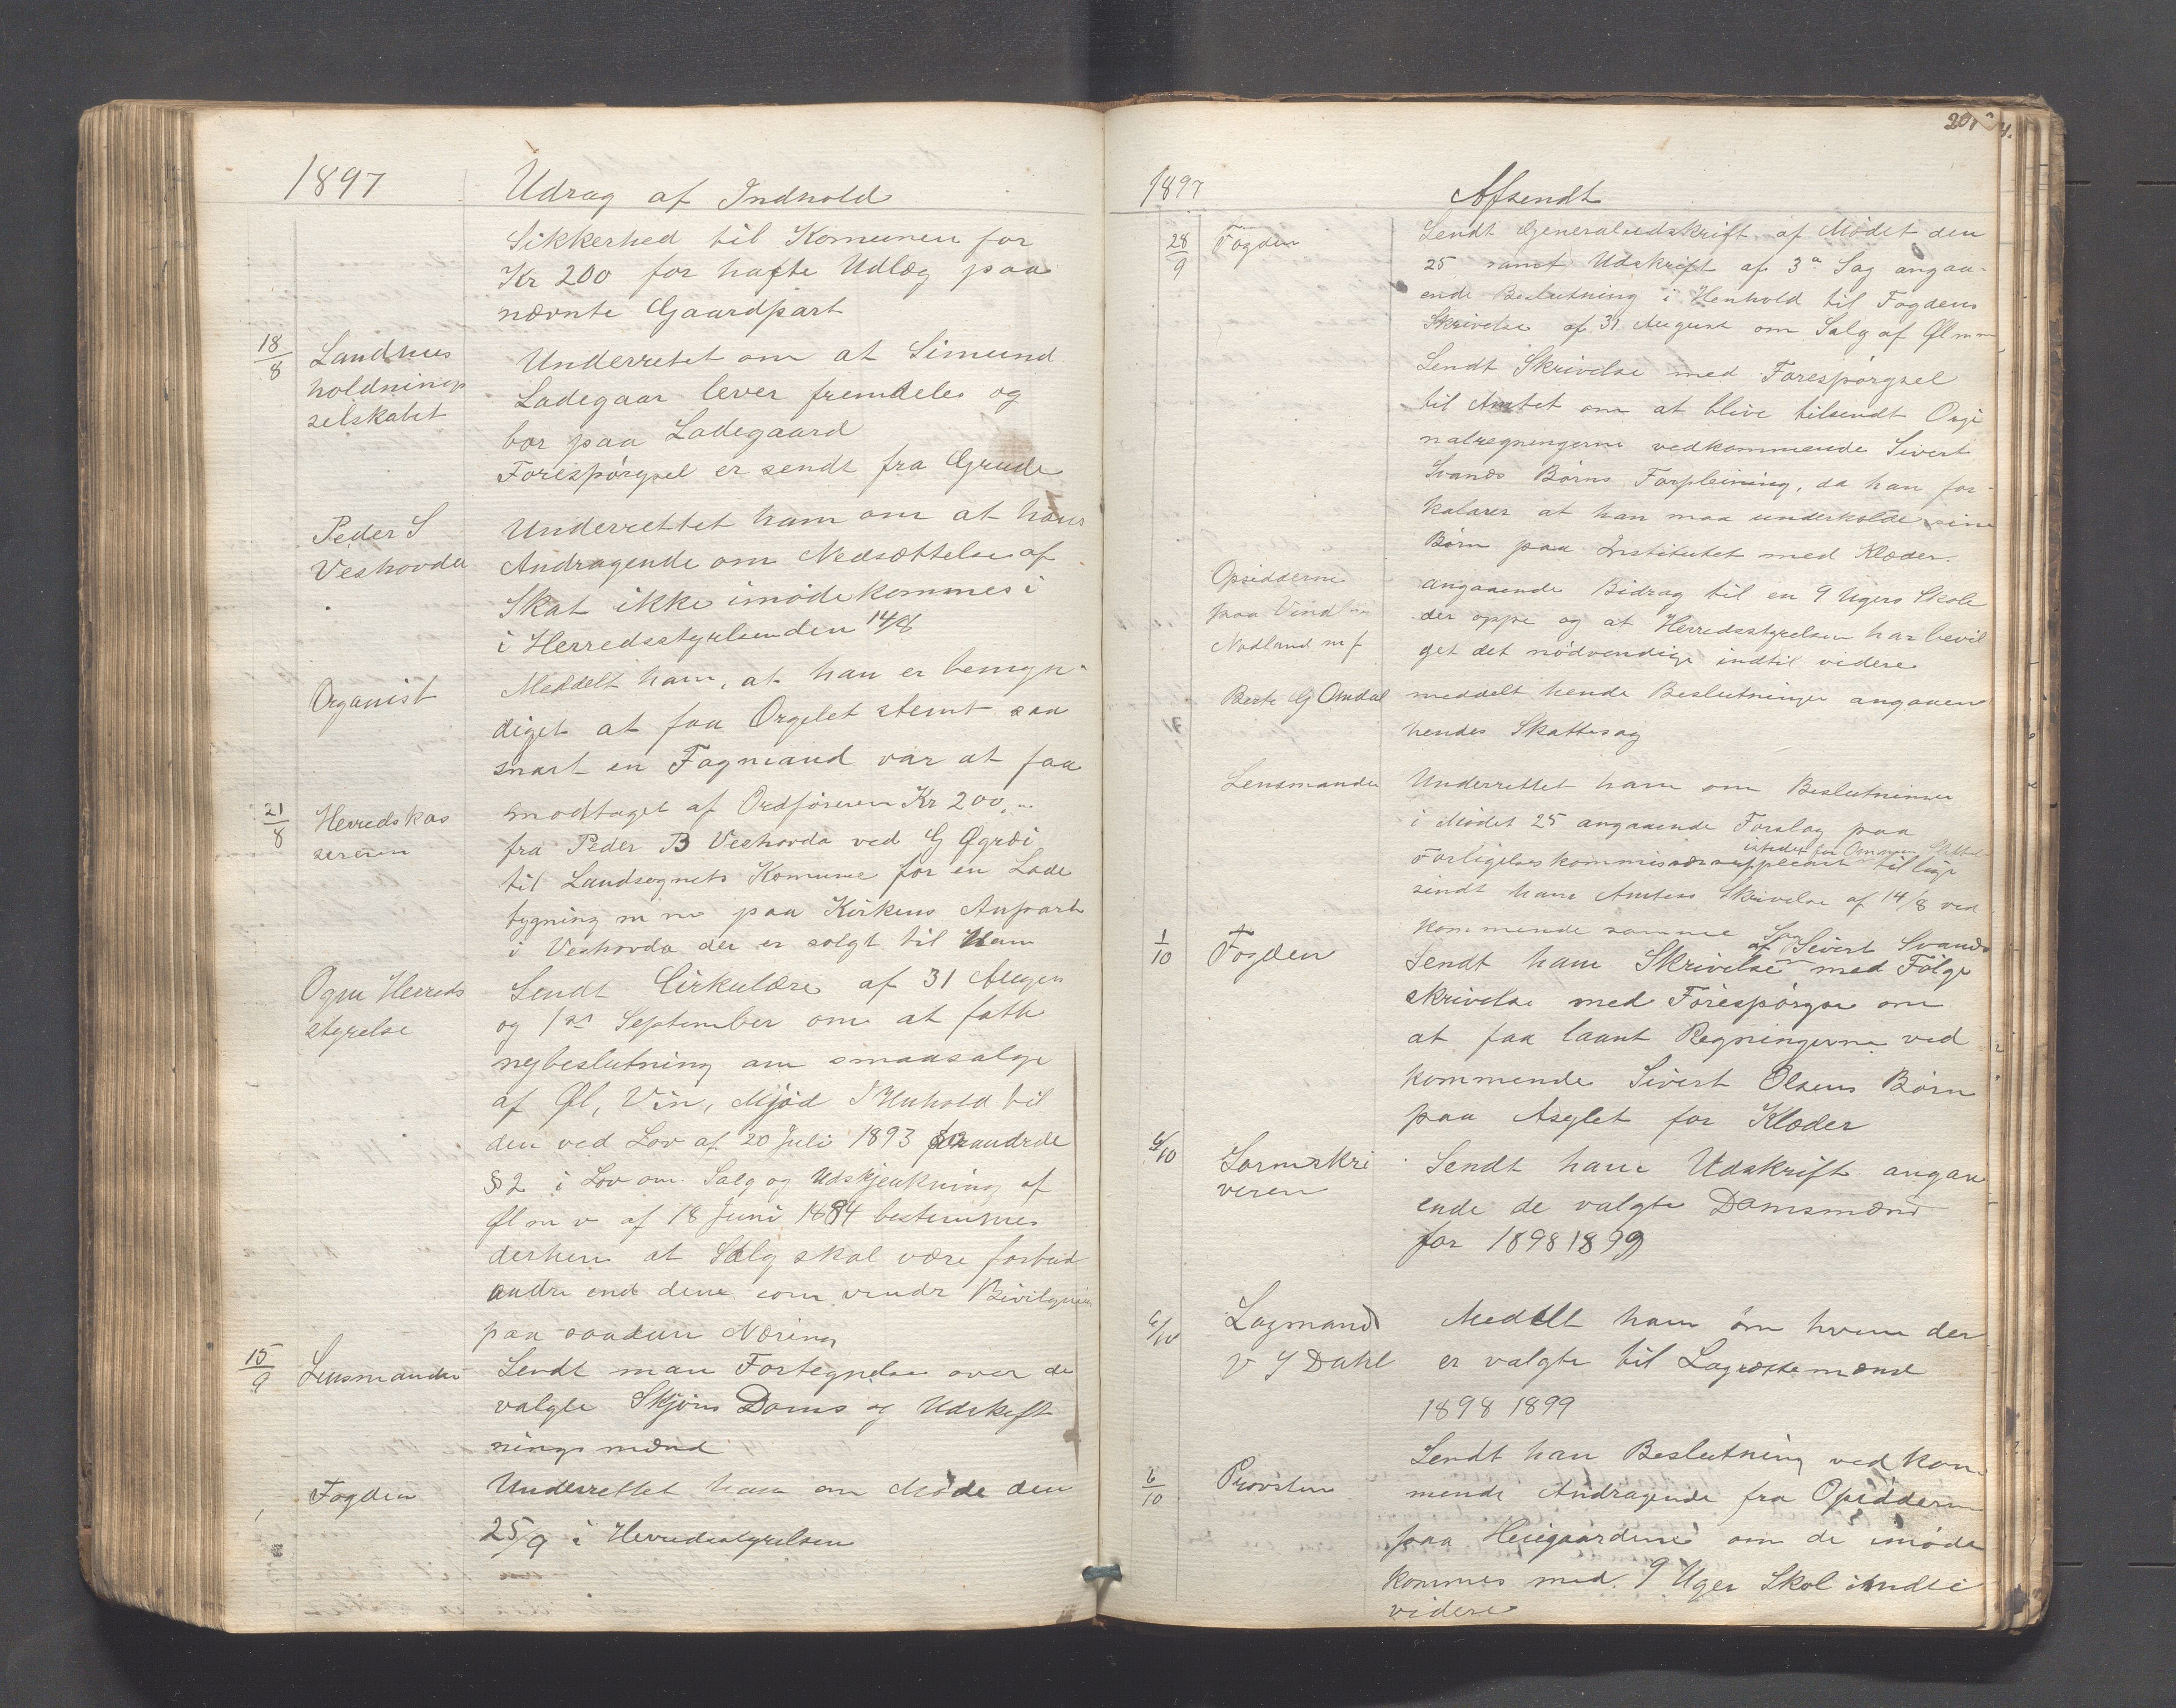 1897 Udrag af Indhold
Sikkerhed til Komunen for
Kr 200 for hafte Udlæg paa
nævnte Gaardpart
18/8 Landhus Underretet om at Simund
holdnings Ladegaar lever fremdeles og
selskabet bor paa Ladegaard
Forespørgsel er sendt fra Grude
Peder S Underrettet ham om at hans
Veshovda Andragende om Nedsættelse af
Skat ikke imødekommes i
i Herredsstyrelsen den 14/8
Organist Meddelt ham, at han er bemyn
diget at faa Orgelet stemt saa
snart en Fagmand var at faa
21/8 Herredskas modtaget af Ordføreren Kr 200,-
sereren fra Peder B Veshovda ved G Øgrei
til Landsognets Komune for en Lade
bygning m m paa Kirkens Anpart
i Veshovda der er solgt til Ham
Ogne Herreds Sendt Cirkulære af 31 August
styrelse og 1ste September om at fatte
nybeslutning om smaasalge
af Øl, Vin, Mjød I Henhold til
den ved Lov af 20 Juli 1893 forandrede
§ 2 i Lov om Salg og Udskjenkning af
Øl m v af 18 Juni 1884 bestemmes
derhen at Salg skal være forbud
andre end dem som vinder Bevilgning
paa saadan Næring
15/9 Lensmanden Sendt man Fortegnelse over de
valgte Skjøns Doms og Udskift
nings mænd
Fogden Underrettet ham om Møde den
25/9 i Herredsstyrelsen
201
1897 Afsendt
28/9 Fogden Sendt Generaludskrift af Mødet den
25 samt Udskrift af 3a Sag angaa-
ende Beslutning i Henhold til Fogdens
Skrivelse af 31 August om Salg af Øl m m
Sendt Skrivelse med Forespørgsel
til Amtet om at blive tilsendt Orgi
nalregningerne vedkommende Sivert
Svands Børns Forpleining, da han for-
kalarer at han maa underholde sine
Børn paa Institutet med Klæder.
Opsidderne angaaende Bidrag til en 9 Ugers Skole
paa Vind der oppe og at Herredsstyrelsen har bevil
Nodland m f get det nødvendige indtil videre
Berte Gj Omdal meddelt hende Beslutninger angaaen
hendes Skattesag
Lensmanden Underrettet ham om Beslutninger
i Mødet 25 angaaende Forslag paa
istedet for Ommun
Forligelseskommisærsuppleant tillige
sendt ham Amtets Skrivelse af 14/8 ved
kommende samme Sag
1/10 Fogden Sendt ham Skrivelse af Sivert Svands med Følge
skrivelse med Forespørgse om
at faa laant Regningerne ved
kommende Sivert Olsens Børn
paa Asylet for Klæder
6/10 Sornskri Sendt ham Udskrift angaa
veren ende de valgte Domsmænd
for 1898 1899
6/10 Lagmand Meddelt ham om hvem der
V J Dahl er valgte til Lagrettemænd
1898 1899
6/10 Provsten Sendt han Beslutning ved kom
mende Andragende fra Opsidderne
paa Heiegaardene om de imøde
kommes med 9 Uger Skol indtil
videre